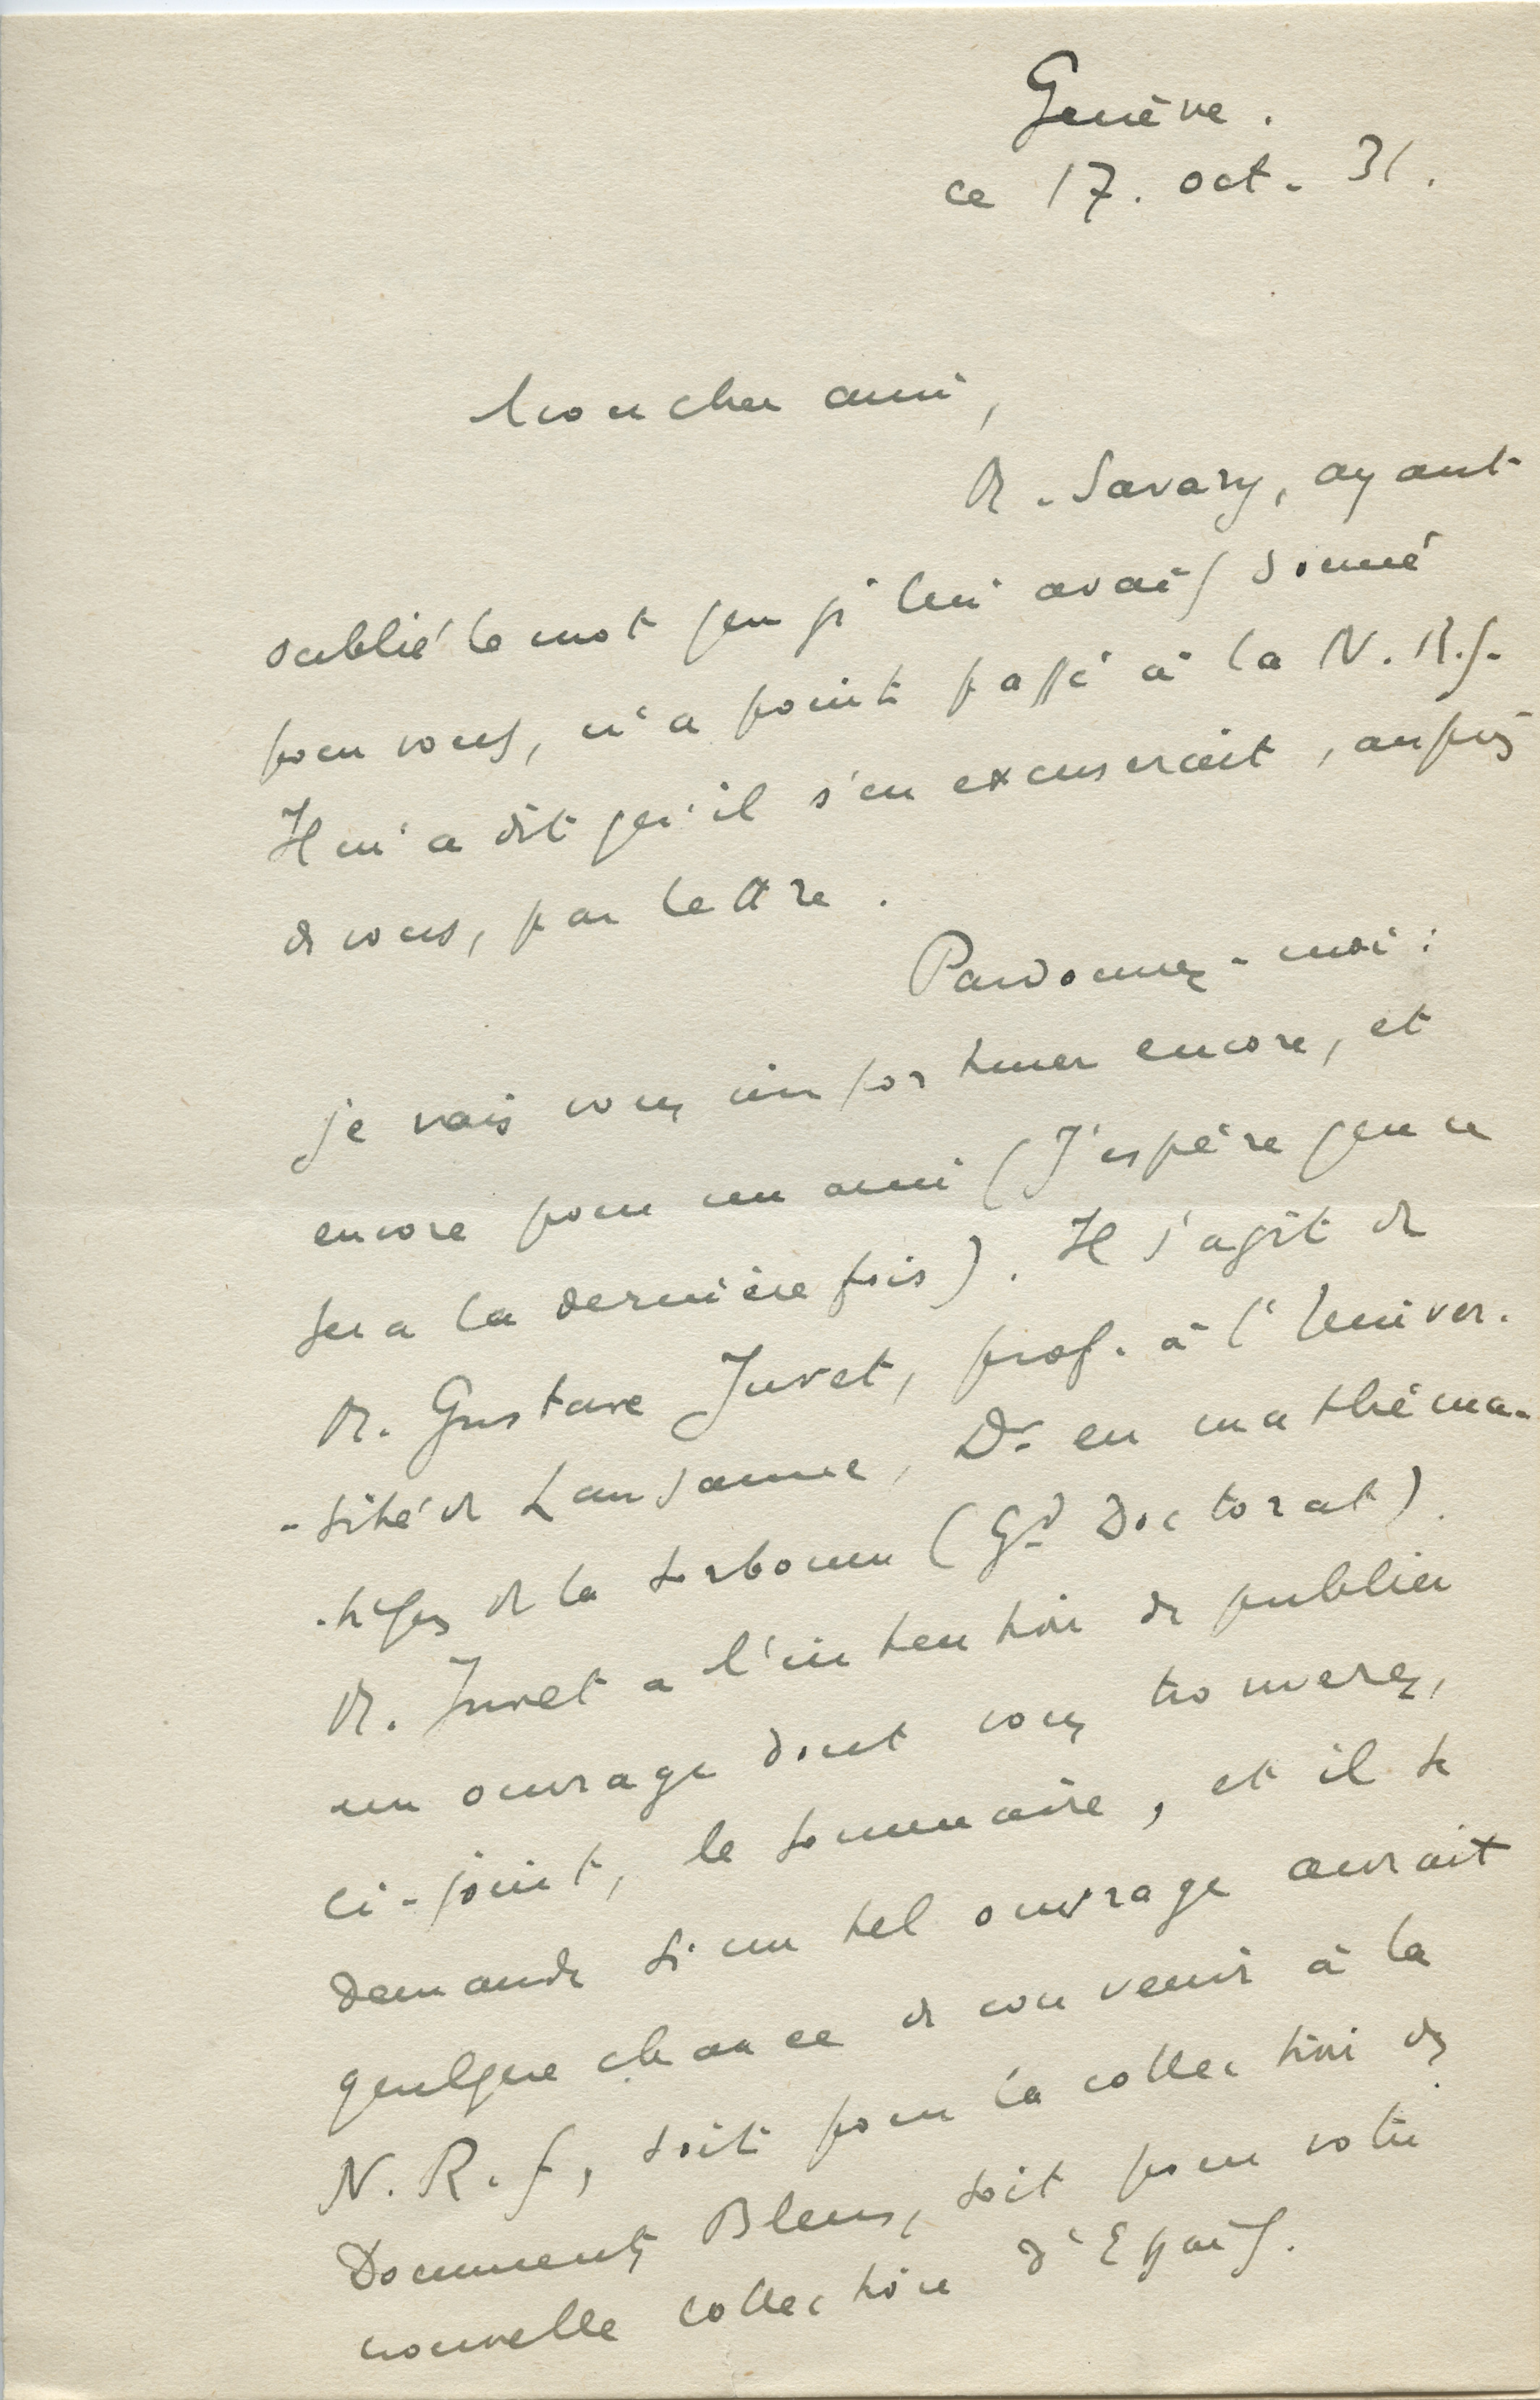 Genève.
ce 17. oct. 31.
Mon cher ami,
M. Savary, ayant
oublié le mot que je lui avais donné
pour vous, n'a point passé à la N.R.f.
Il m'a dit qu'il s'en excuserait, auprès
de vous, par lettre.
Pardonnez-moi :
je vais vous importuner encore, et
encore pour un ami (J'espère que ce
sera la dernière fois). Il s'agit de
M. Gustave Juvet, prof. à l'Univer-
-sité de Lausanne, Dr en mathéma-
-tiques de la Sorbonne (Gd Doctorat).
M. Juvet a l'intention de publier
un ouvrage dont vous trouverez,
ci-joint, le sommaire, et il se
demande si un tel ouvrage aurait
quelque chance de convenir à la
N.R.f, soit pour la collection des
Documents Bleus, soit pour votre
nouvelle collection d'Essais.